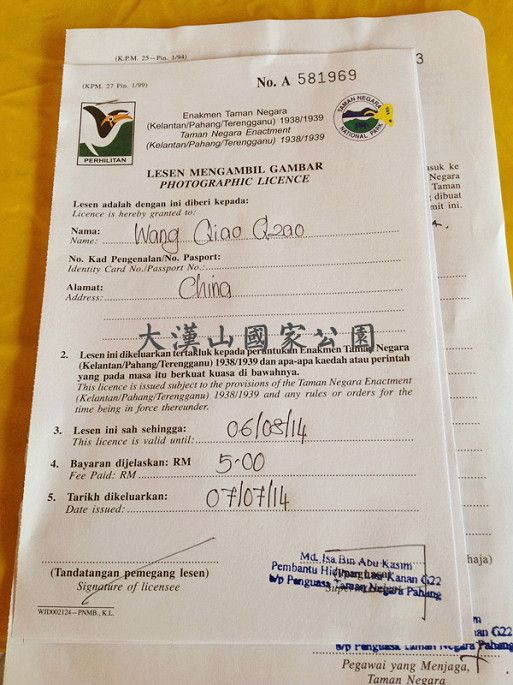 (K.P.M. 25—Pin. 1/94)
3
(KPM. 27 Pin. 1/99)
No. A 581969
PERHILITAN
Enakmen Taman Negara
(Kelantan/Pahang/Terengganu) 1938/1939
Taman Negara Enactment
(Kelantan/Pahang/Terengganu) 1938/1939
TAMAN NEGARA
NATIONAL PARK
LESEN MENGAMBIL GAMBAR
PHOTOGRAPHIC LICENCE
asuk ke
Negara
Taman
dibuat
mit ini.
Lesen adalah dengan ini diberi kepada:
Licence is hereby granted to:
Nama: Wang Qiao Qzao
Name:
No. Kad Pengenalan/No. Pasport:
Identity Card No./Passport No.:
Alamat: China
Address:
大漢山國家公園
2. Lesen ini dikeluarkan tertakluk kepada peruntukan Enakmen Taman Negara
(Kelantan/Pahang/Terengganu) 1938/1939 dan apa-apa kaedah atau perintah
yang pada masa itu berkuat kuasa di bawahnya.
This licence is issued subject to the provisions of the Taman Negara Enactment
(Kelantan/Pahang/Terengganu) 1938/1939 and any rules or orders for the
time being in force thereunder.
3. Lesen ini sah sehingga: 06/08/14
This licence is valid until:
4. Bayaran dijelaskan: RM 5-00
Fee Paid: RM
5. Tarikh dikeluarkan: 07/07/14
Date issued:
haja)
Md. Isa Bin Abu Kasim
Pembantu Hidupan Liar Kanan G22
b/p Penguasa Taman Negara Pahang
(Tandatangan pemegang lesen)
Signature of licensee
WJD002124—PNMB., K.L.
an G22
b/p Penguasa Taman Negara Pahang
Pegawai yang Menjaga,
Taman Negara